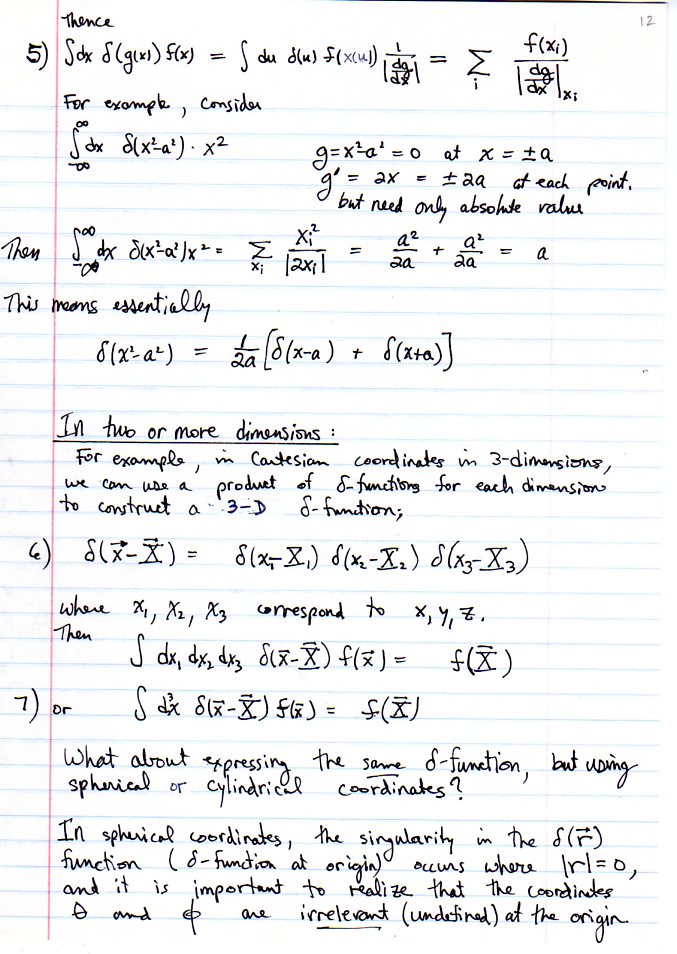 12
Thence
5) ∫dx δ(g(x)) f(x) = ∫ du δ(u) f(x(u)) 1/|dg/dx| = Σ_i f(x_i)/|dg/dx|_{x_i}
For example, consider
∫_{-∞}^{∞} dx δ(x²-a²) · x²
g=x²-a² = 0 at x = ±a
g' = 2x = ±2a at each point.
but need only absolute value
Then ∫_{-∞}^{∞} dx δ(x²-a²)x² = Σ_{x_i} x_i²/|2x_i| = a²/2a + a²/2a = a
This means essentially
δ(x²-a²) = 1/2a [δ(x-a) + δ(x+a)]
In two or more dimensions:
For example, in Cartesian coordinates in 3-dimensions,
we can use a product of δ-functions for each dimension
to construct a 3-D δ-function;
6) δ(x⃗-X⃗) = δ(x₁-X₁) δ(x₂-X₂) δ(x₃-X₃)
where x₁, x₂, x₃ correspond to x, y, z.
Then
∫ dx₁ dx₂ dx₃ δ(x⃗-X⃗) f(x⃗) = f(X⃗)
7) or ∫ d³x δ(x⃗-X⃗) f(x⃗) = f(X⃗)
What about expressing the same δ-function, but using
spherical or cylindrical coordinates?
In spherical coordinates, the singularity in the δ(r⃗)
function (δ-function at origin) occurs where |r|=0,
and it is important to realize that the coordinates
θ and ϕ are irrelevant (undefined) at the origin.